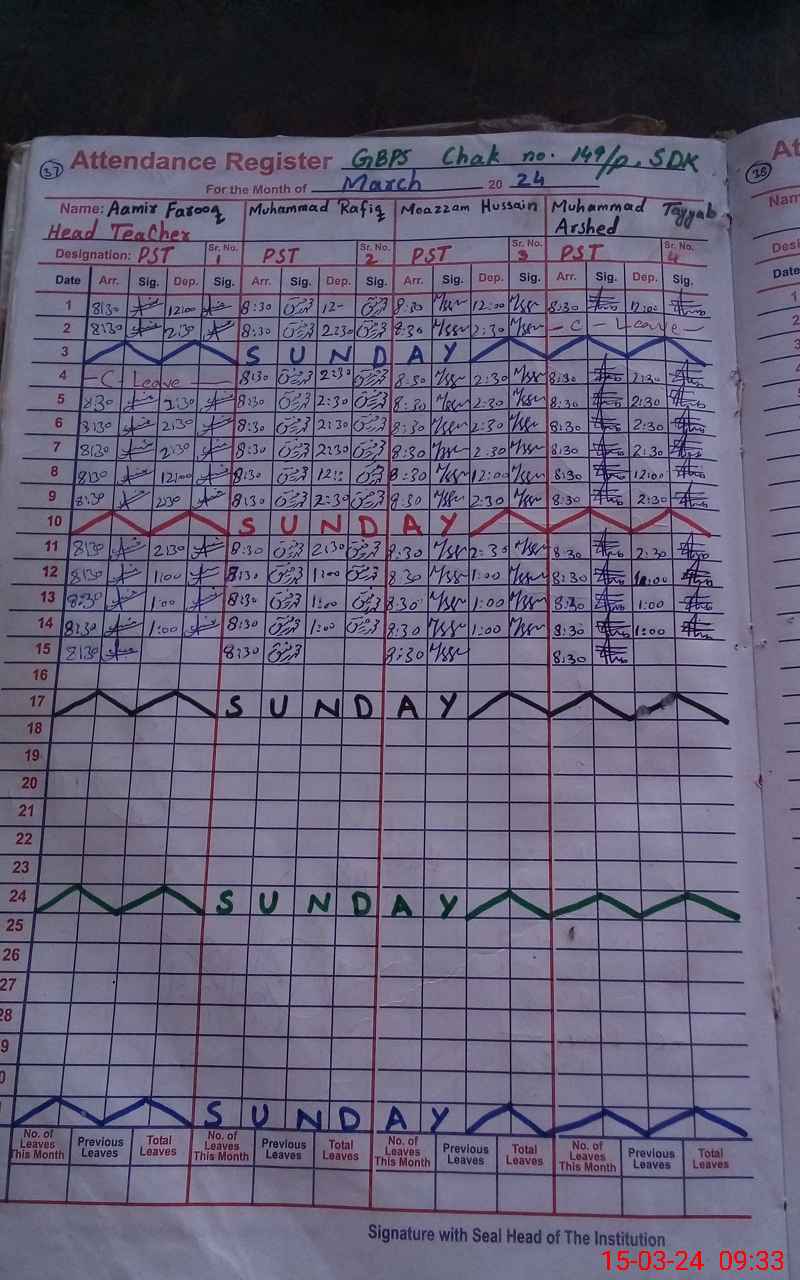 37 Attendance Register GBPS Chak no. 149/p, SDK
For the Month of March 20 24
Name: Aamir Farooq Muhammad Rafiq Moazzam Hussain Muhammad Tayyab
Head Teacher Arshed
Designation: PST Sr. No. 1 PST Sr. No. 2 PST Sr. No. 3 PST Sr. No. 4
Date Arr. Sig. Dep. Sig. Arr. Sig. Dep. Sig. Arr. Sig. Dep. Sig. Arr. Sig. Dep. Sig.
1 8:30 12:00 8:30 12- 8:30 12:00 8:30 12:00
2 8:30 2:30 8:30 2:30 8:30 2:30 - C - Leave -
3 SUNDAY
4 - C Leave - 8:30 2:30 8:30 2:30 8:30 2:30
5 8:30 2:30 8:30 2:30 8:30 2:30 8:30 2:30
6 8:30 2:30 8:30 2:30 8:30 2:30 8:30 2:30
7 8:30 2:30 8:30 2:30 8:30 2:30 8:30 2:30
8 8:30 12:00 8:30 8:30 12:00 8:30 12:00
9 8:30 2:30 8:30 2:30 8:30 2:30 8:30 2:30
10 SUNDAY
11 8:30 2:30 8:30 2:30 8:30 2:30 8:30 2:30
12 8:30 1:00 8:30 1:00 8:30 1:00 8:30
13 8:30 1:00 8:30 1:00 8:30 1:00 8:30 1:00
14 8:30 1:00 8:30 1:00 8:30 1:00 8:30 1:00
15 8:30 8:30 8:30 8:30
16
17 SUNDAY
18
19
20
21
22
23
24 SUNDAY
25
26
27
28
9
0
SUNDAY
No. of Leaves This Month Previous Leaves Total Leaves No. of Leaves This Month Previous Leaves Total Leaves No. of Leaves This Month Previous Leaves Total Leaves No. of Leaves This Month Previous Leaves Total Leaves
Signature with Seal Head of The Institution
15-03-24 09:33